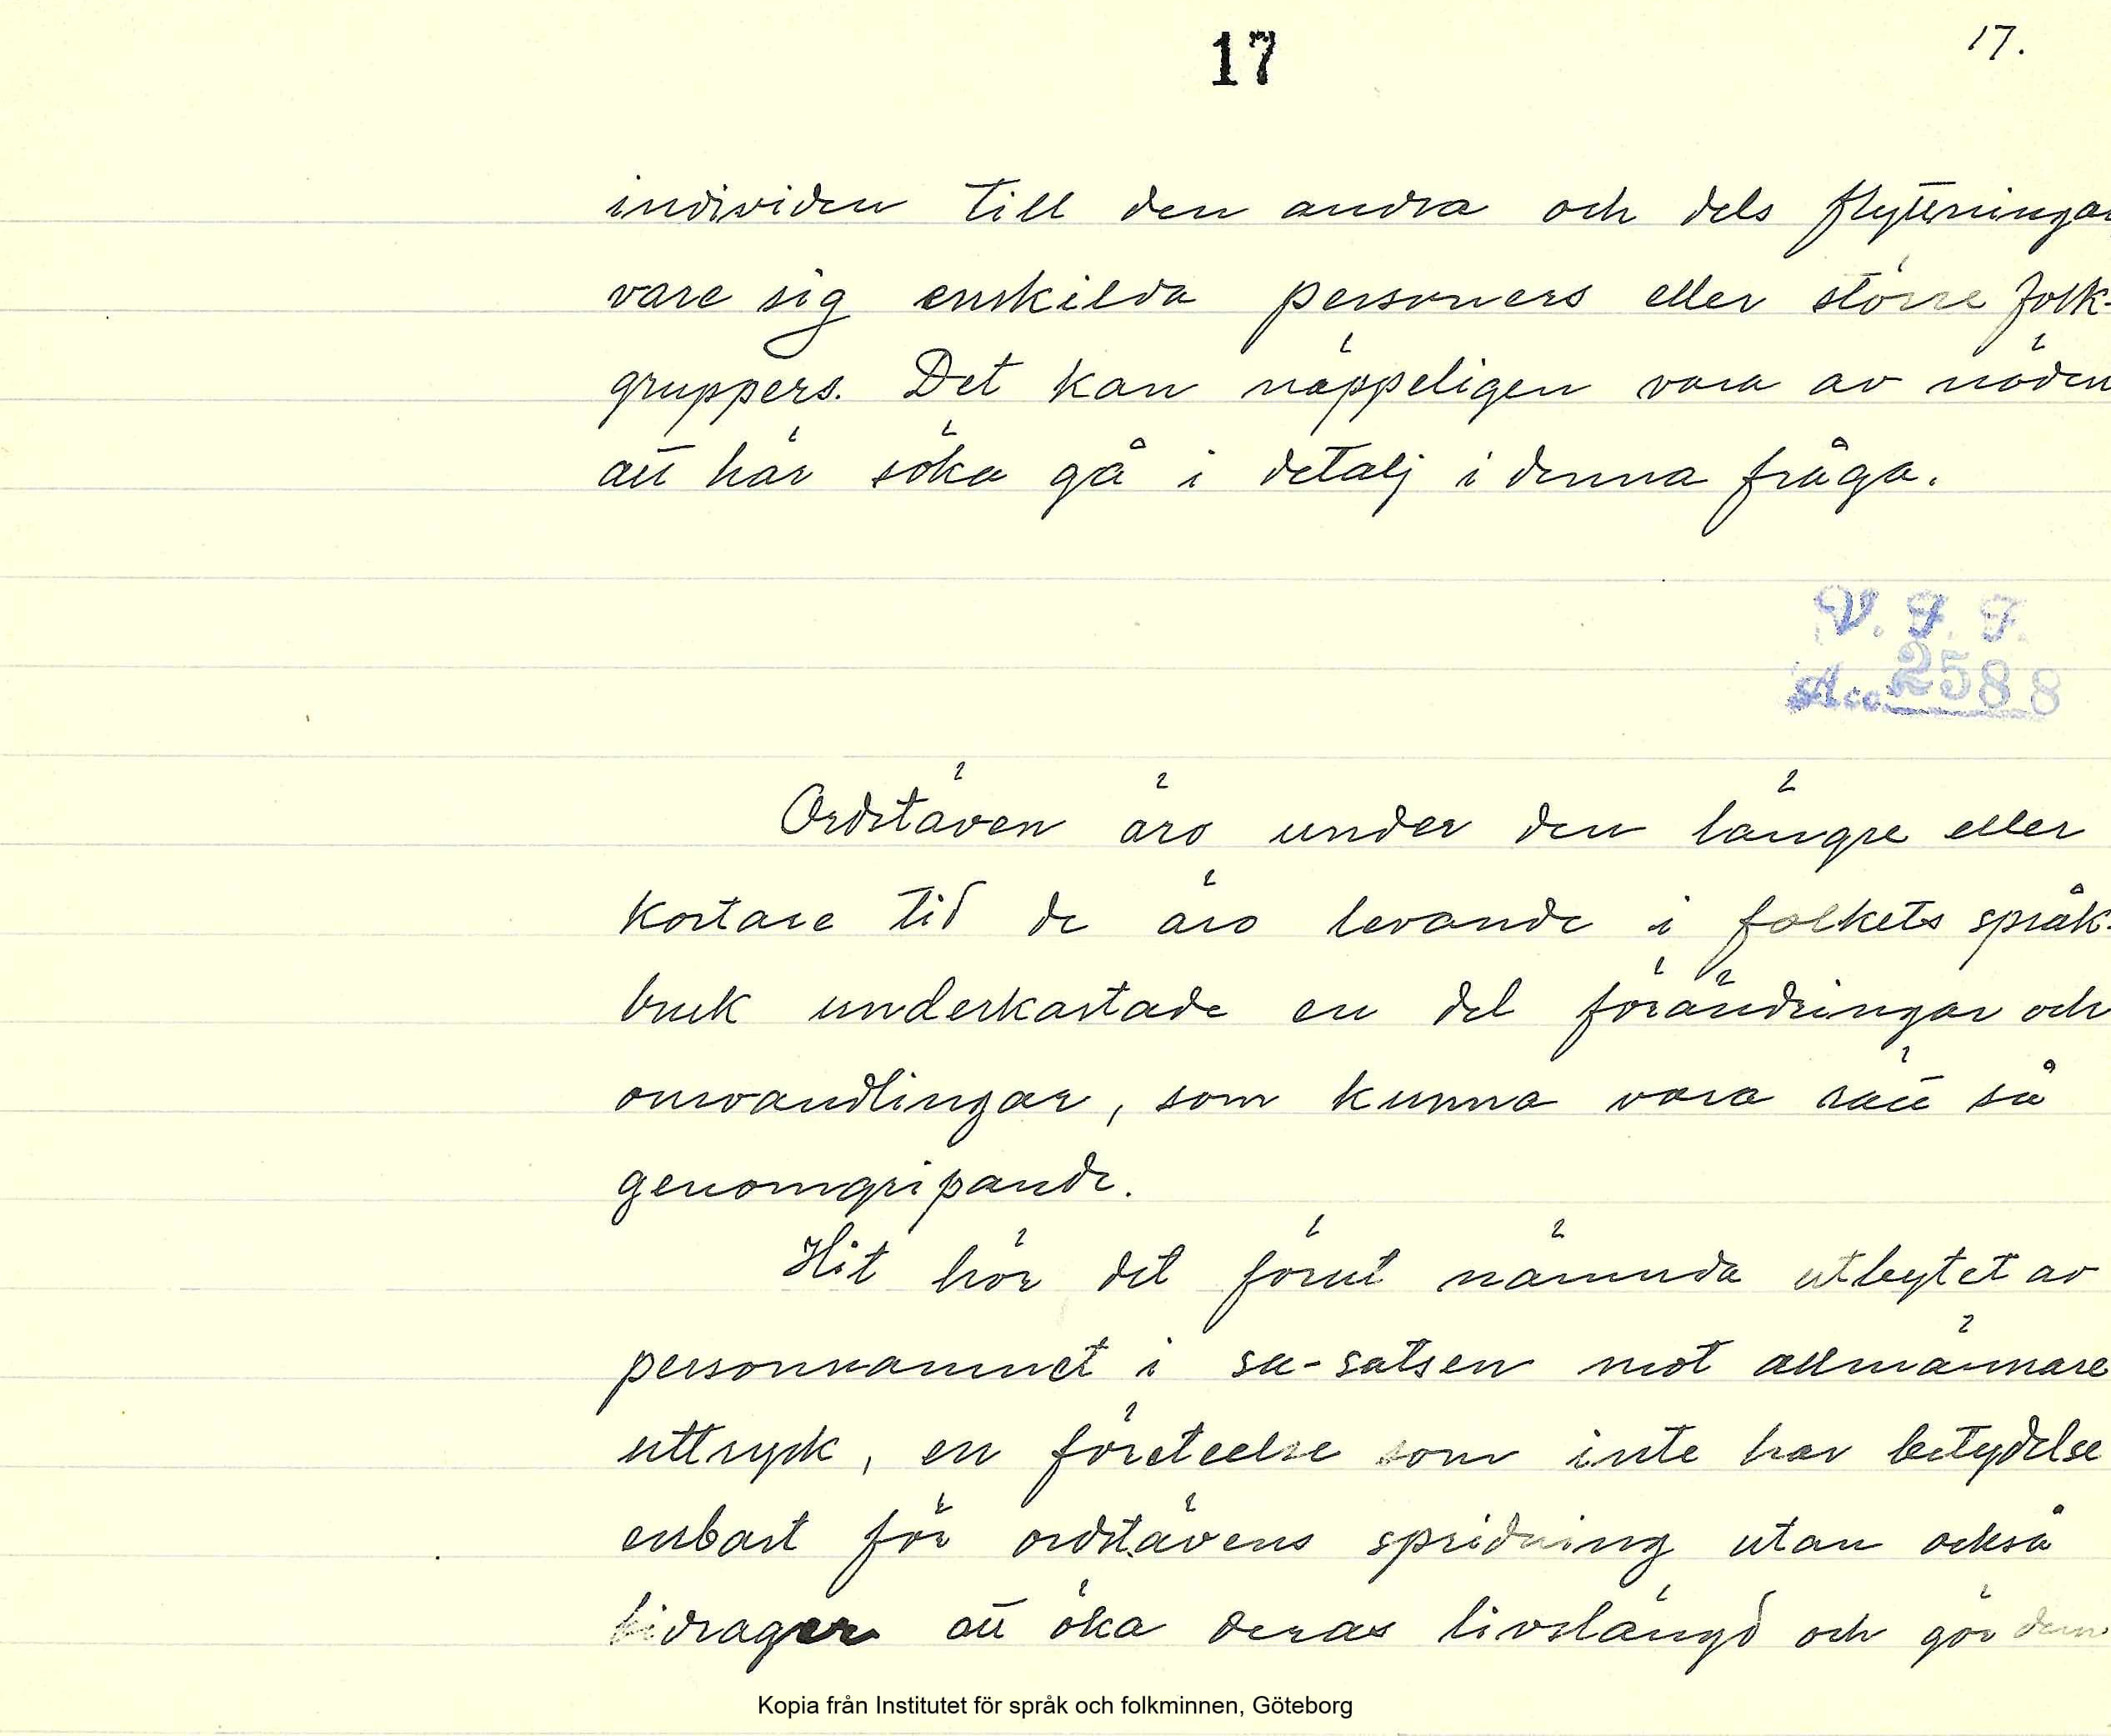 17
17.
individen till den andra och dels flyttningar,
vare sig enskilda personers eller större folk-
gruppers. Det kan näppeligen vara av nöden
att här söka gå i detalj i denna fråga.
V. F. F.
Acc. 2588
Ordstäven äro under den längre eller
kortare tid de äro levande i folkets språk-
bruk underkastade en del förändringar och
omvandlingar, som kunna vara rätt så
genomgripande.
Hit hör det förut nämnda utbytet av
personnamnet i sa-satsen mot allmännare
uttryck, en företeelse som inte har betydelse
enbart för ordstävens spridning utan också
bidrager att öka deras livslängd och gör dem
Kopia från Institutet för språk och folkminnen, Göteborg